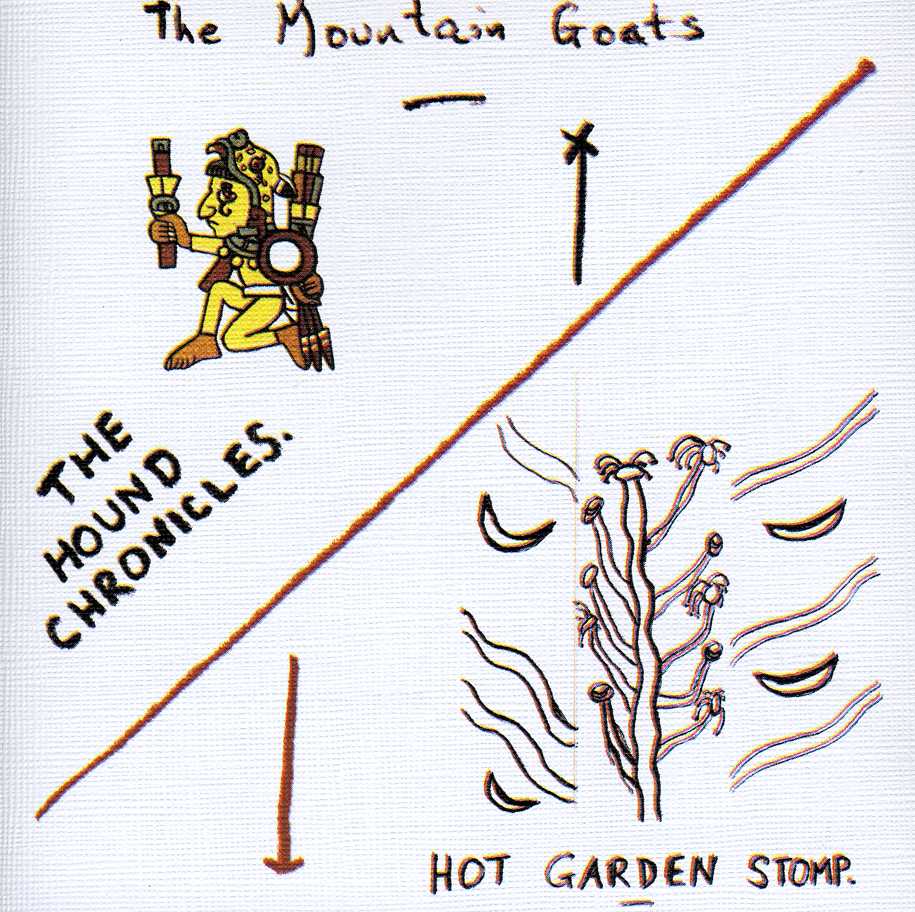 The Mountain Goats
THE
HOUND
CHRONICLES.
HOT GARDEN STOMP.